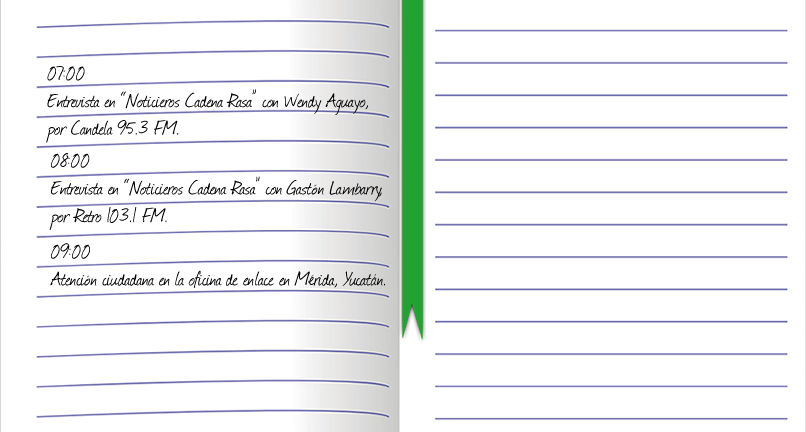 07:00
Entrevista en "Noticieros Cadena Rasa" con Wendy Aguayo,
por Candela 95.3 FM.
08:00
Entrevista en "Noticieros Cadena Rasa" con Gastón Lambarry,
por Retro 103.1 FM.
09:00
Atención ciudadana en la oficina de enlace en Mérida, Yucatán.